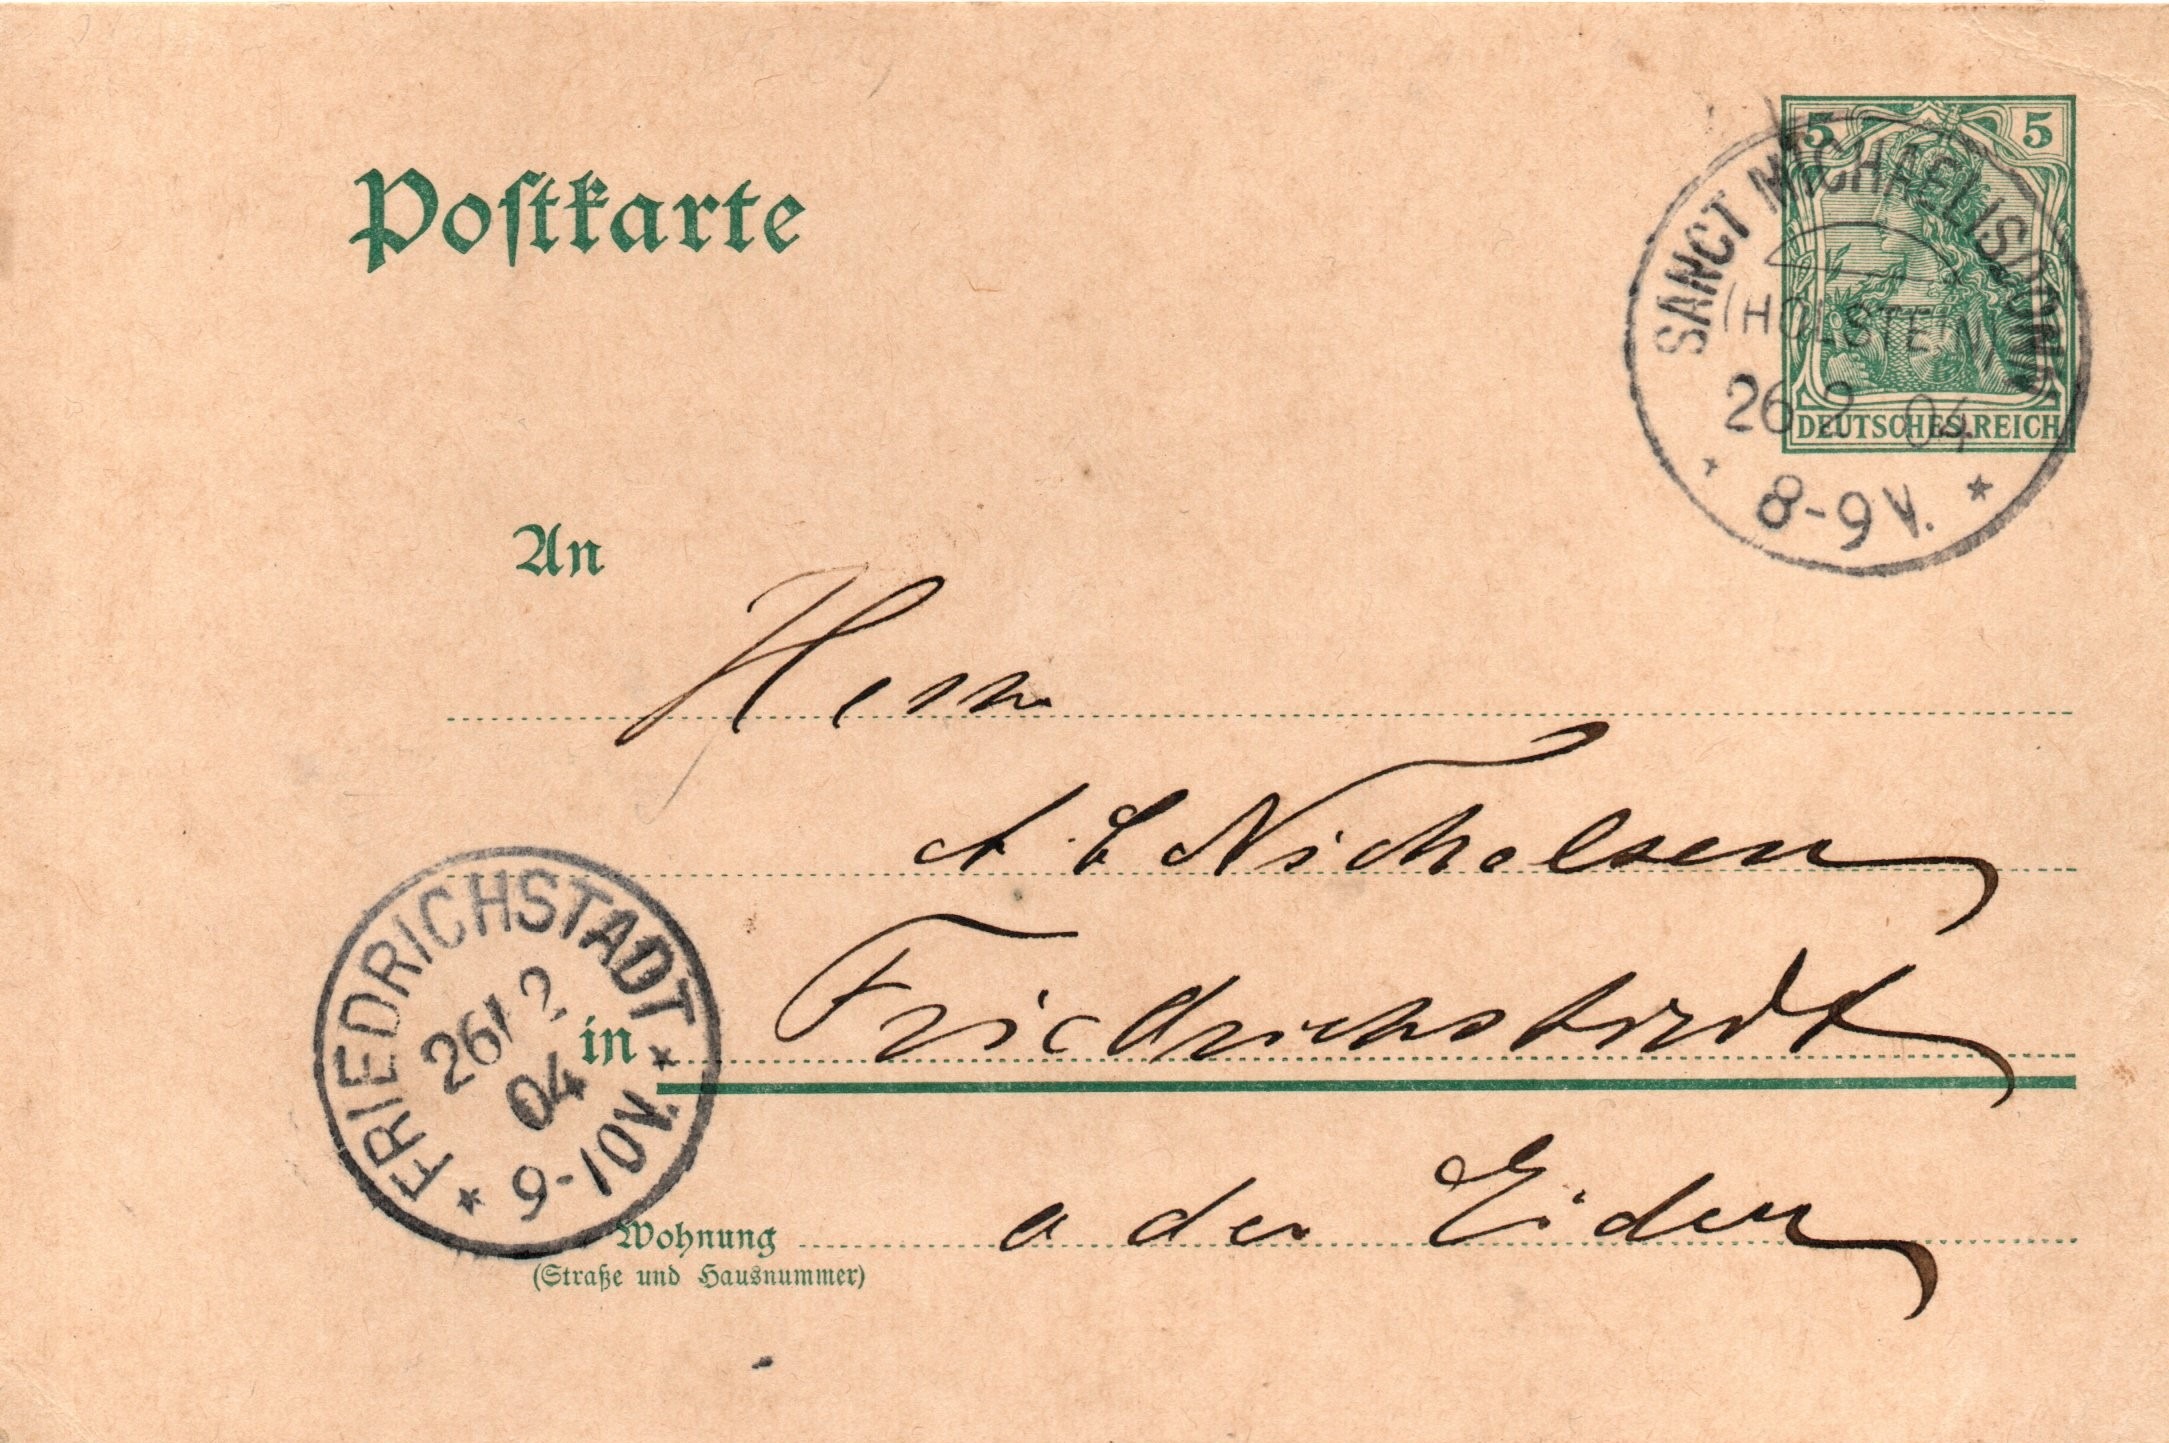 Postkarte
5 5
DEUTSCHES REICH
SANCT MICHAELISDONN
(HOLSTEIN)
26 2 04
* 8-9 V. *
An
Herrn
Nicholsen
FRIEDRICHSTADT
26/2
04
* 9-10V. *
in Friedrichstadt
a der Eider
Wohnung
(Straße und Hausnummer)